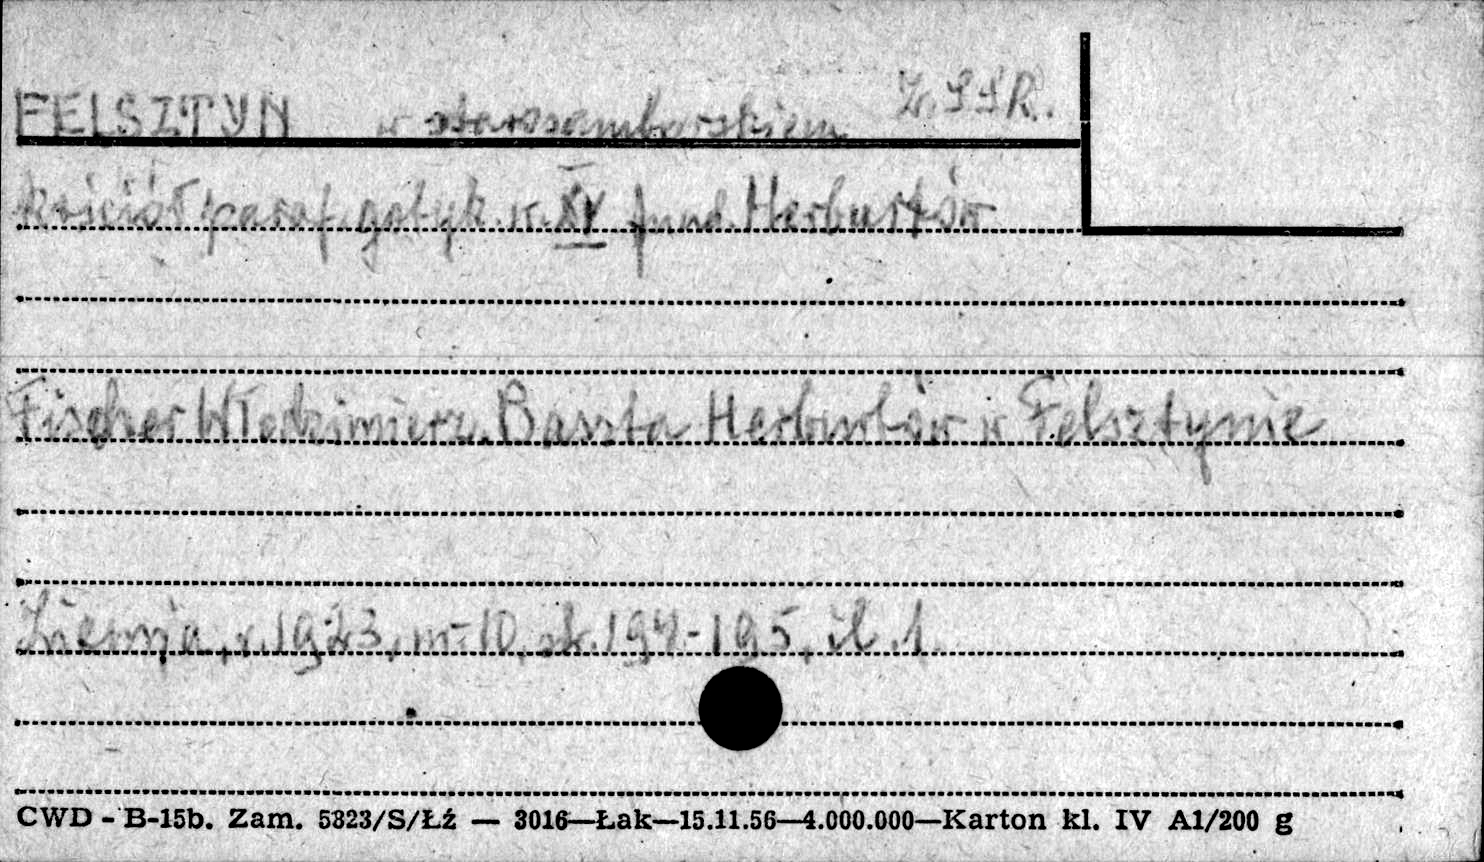 FELSZTYN w starosamborskiem Z.SSR.
kościół paraf. gotyk. w. XV fund. Herburtów
Fischer Włodzimierz. Baszta Herburtów w Felsztynie
Ziemia, r. 1923, nr 10, str. 194-195, il. 1.
CWD - B-15b. Zam. 5323/S/Łź — 3016—Łak—15.11.56—4.000.000—Karton kl. IV A1/200 g